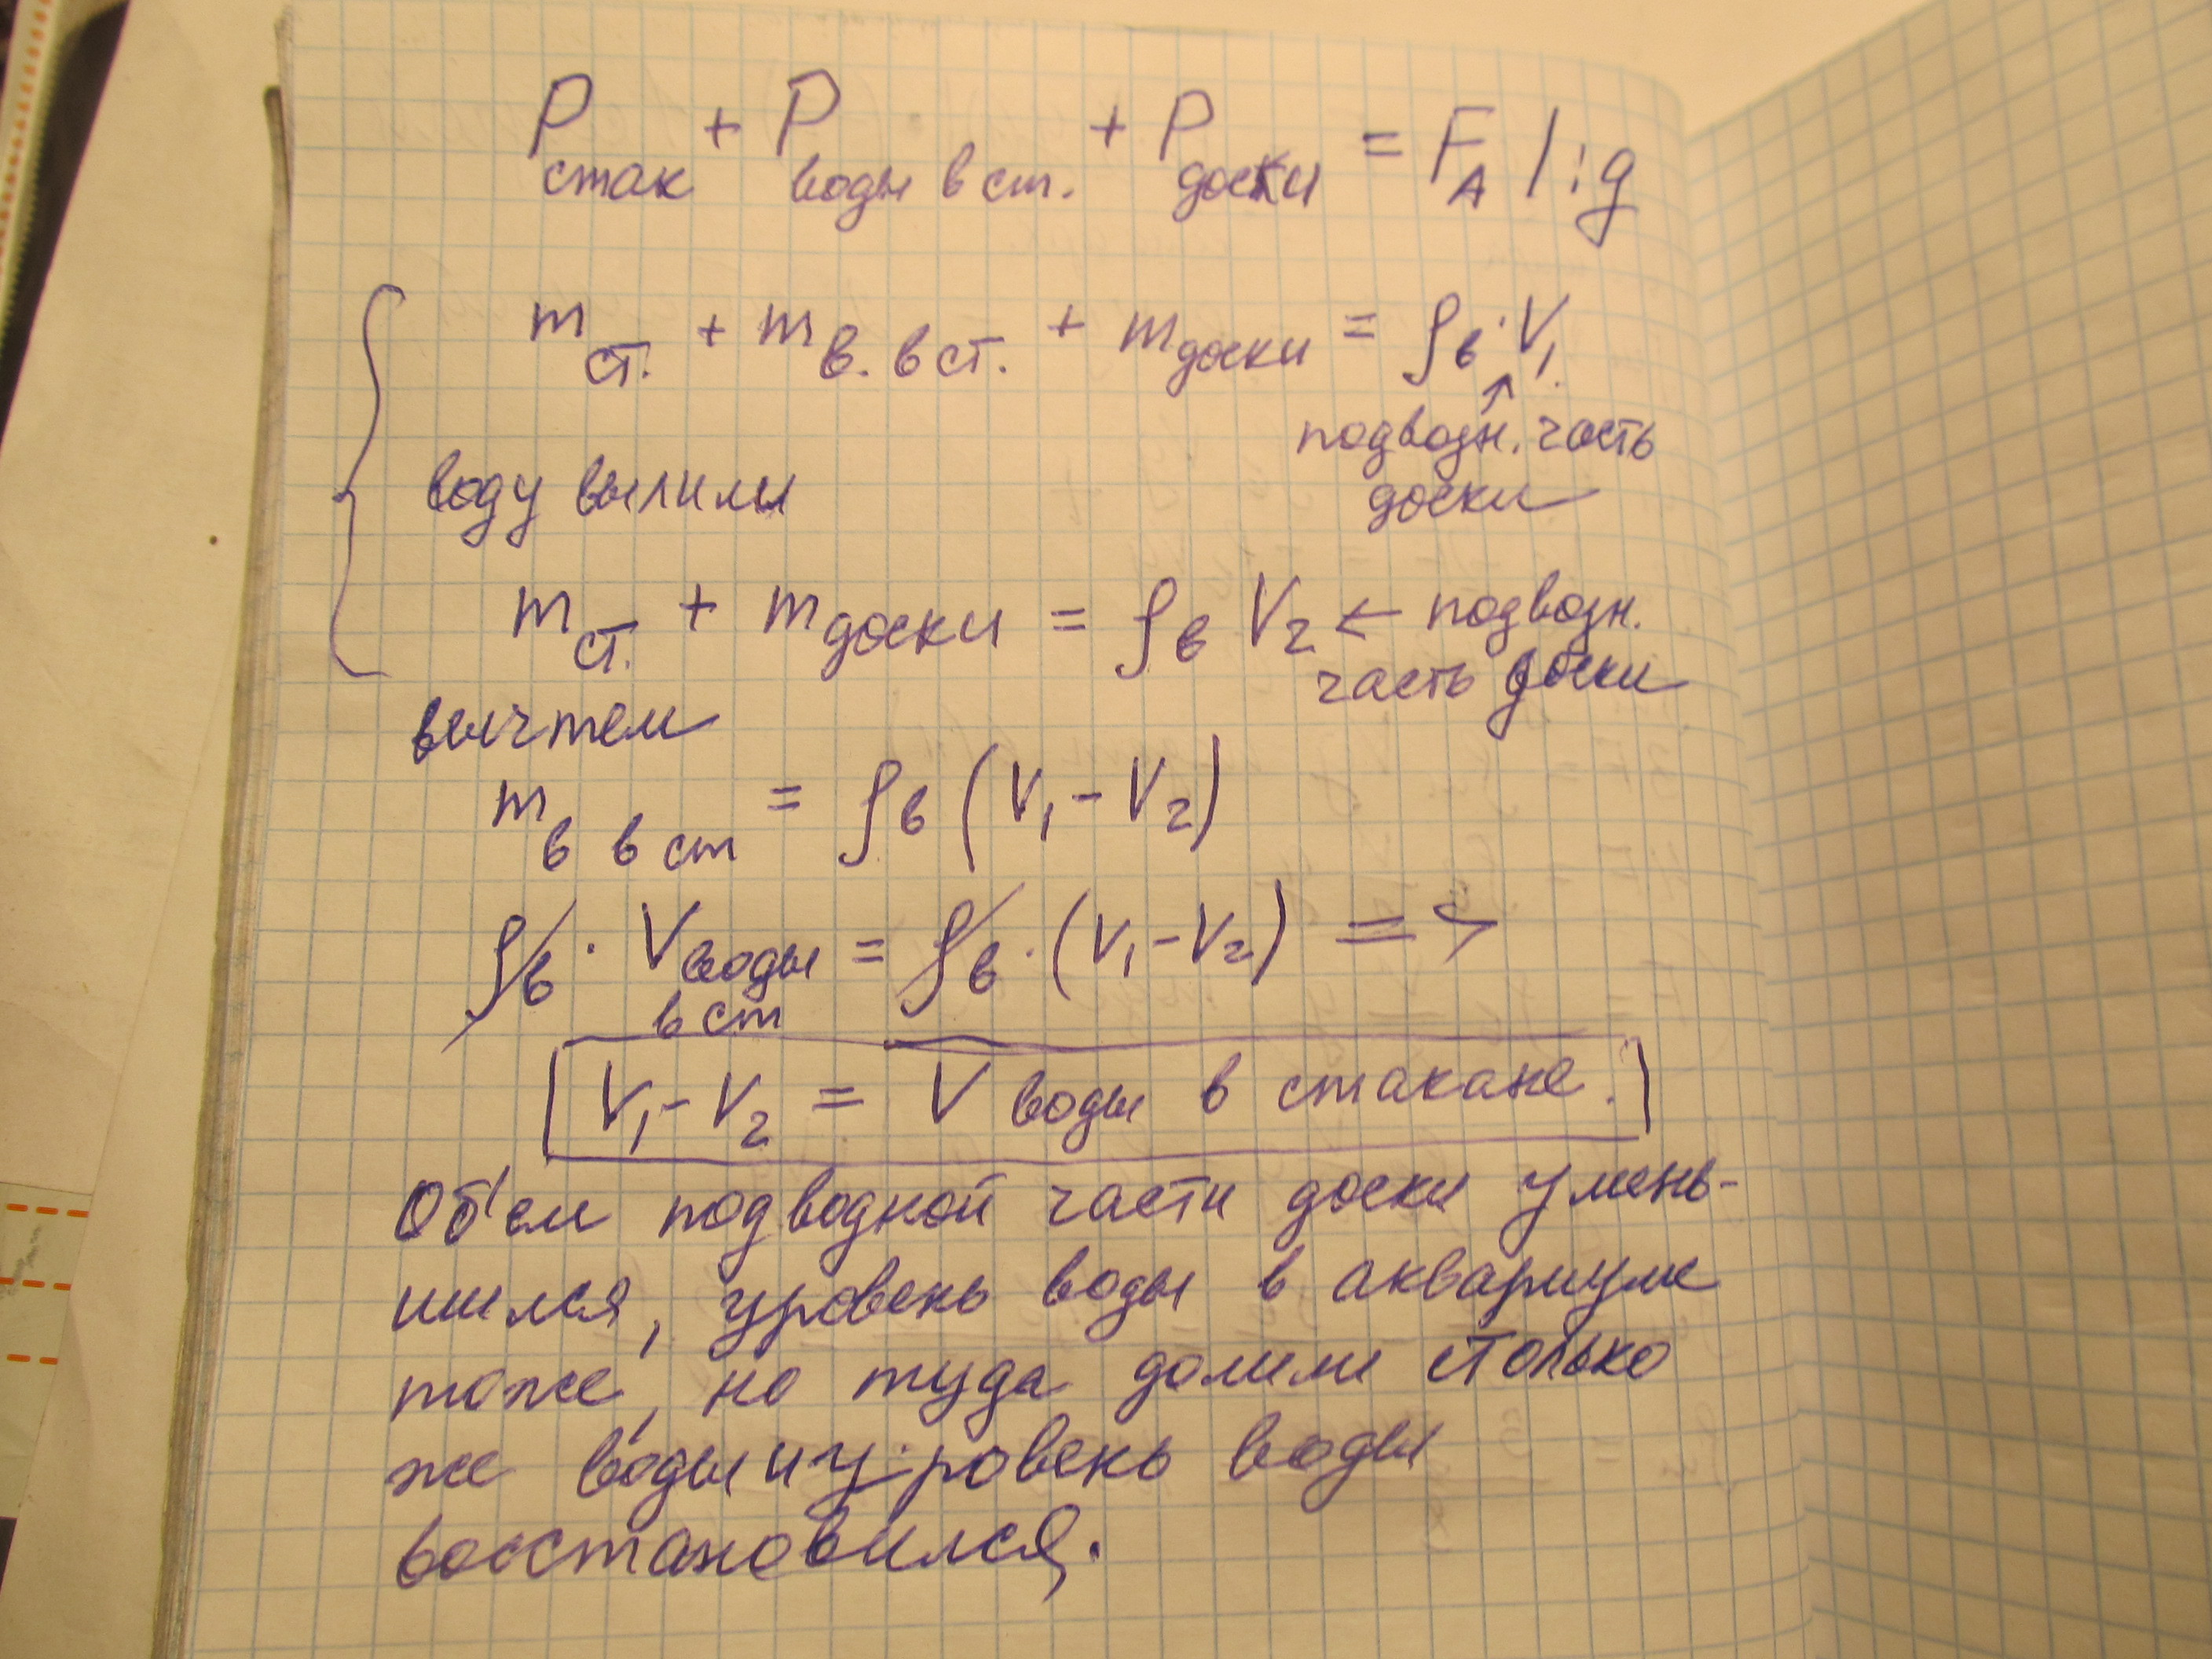 P стак + P воды в ст. + P доски = F A | :g
m ст. + m в. в ст. + m доски = ρв · V₁
подводн. часть
воду вылили
доски
m ст. + m доски = ρв V₂ ← подводн.
часть доски
вычтем
m в в ст = ρв (V₁ - V₂)
ρв · V воды в ст = ρв · (V₁ - V₂) =>
V₁ - V₂ = V воды в стакане.
Об'ем подводной части доски умень-
шился, уровень воды в аквариуме
тоже, но туда долили столько
же воды и уровень воды
восстановился.